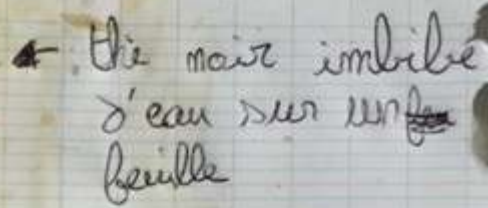 ← thé noir imbibé
d'eau sur un
feuille